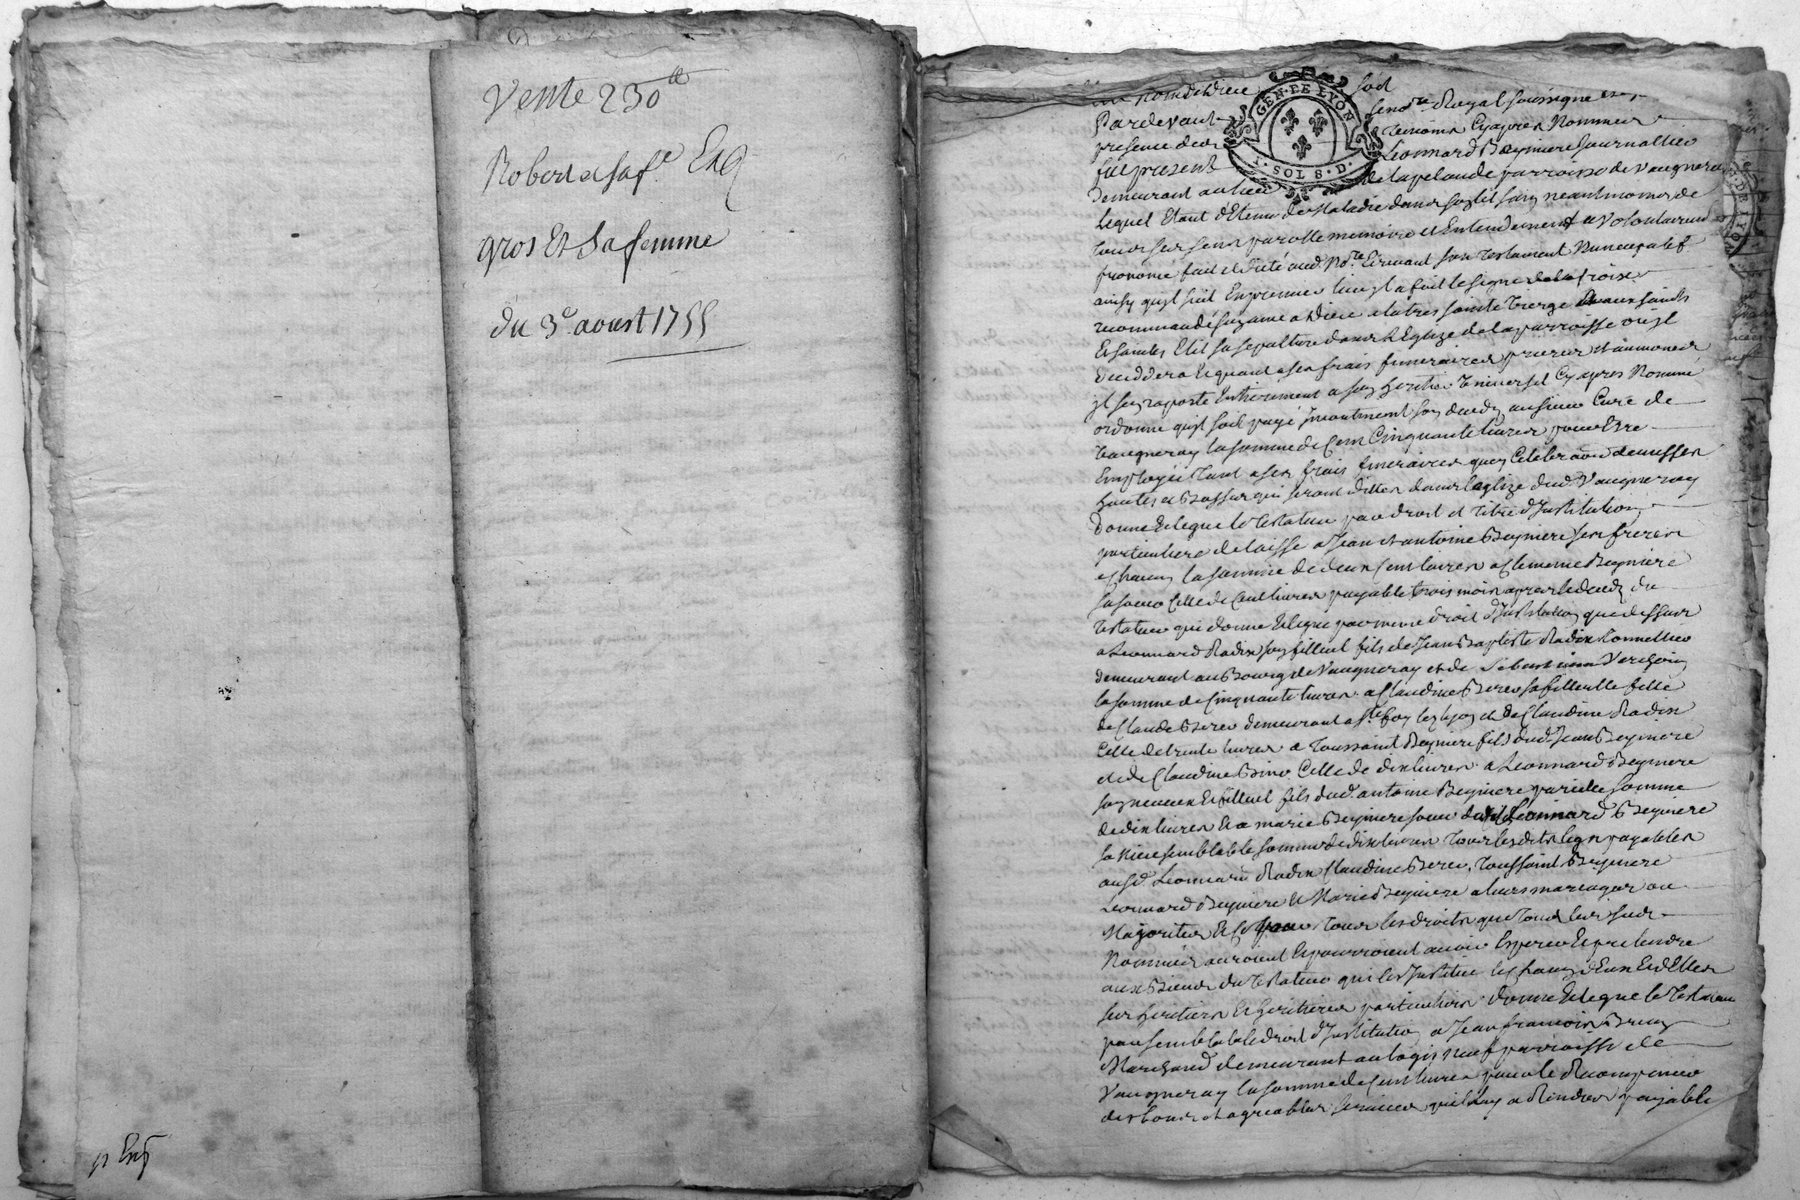 Vente 230ll
Robert et sa fe
gros Et Sa femme
du 3e aoust 1755
GEN. DE LYON
1. SOL 8. D.
au nom de dieu soit
Pardevant Royal soussigne
presence de temoins Cyapres Nommes
fut present Leonnard Beyniere Journallier
demeurant au lieu de lapelaude parroisse de Vaugneray
Lequel Etant détenu de Maladie dans son lit sain neantmoins de
tous ses sens parolle memoire et Entendement a volontairement
prononcé fait et dicté aud. Nore Ecrivant son testament Nuncupatif
ainsy quil suit En premier lieu il a fait le signe de la Croix
recommandé son ame a dieu a la tres sainte Vierge aux saints
Et saintes Elit sa sepulture dans L'Eglize de la parroisse ou il
decedera Et quant a ses frais funeraires prieres et aumones
il sen raporte Entierement a son heritier universel Cyapres Nommé
ordonne quil soit payé Incontinent son deceds au sieur Curé de
Vaugneray la somme de Cent Cinquante livres pour Etre
Employée tant a ses frais funeraires quen Celebration de messes
hautes et Basses qui seront dittes dans leglize dud. Vaugneray
donne Et legue le testateur par droit et titre d'Institution
particuliere delaisse a Jean et antoine Beyniere ses freres
a chacun la somme de deux Cent livres a Clemence Beyniere
sa soeur Celle de Cent livres payable trois mois apres le deceds du
testateur qui donne Et legue par meme droit d'Institution que dessus
a Leonnard Radix son filleul fils de Jean Baptiste Radix
demeurant au Bourg de Vaugneray et de
la somme de Cinquante livres a Claudine sa filleulle fille
de Claude demeurant a Ste foy les lyon et de Claudine Radix
Celle de trente livres a toussaint Beyniere fils dud. Jean Beyniere
et de Claudine Celle de dix livres a Leonnard Beyniere
son neveu Et filleul fils dud. antoine Beyniere pareille somme
de dix livres Et a marie Beyniere soeur dud. Leonnard Beyniere
sa niece semblable somme de dix livres tous lesdits legs payables
ausd. Leonnard Radix Claudine toussaint Beyniere
Leonnard Beyniere Et Marie Beyniere a leurs mariages ou
Majorités Et Ce pour tous les droits que tous les sus
Nommés auroient Et pourroient avoir Esperer Et pretendre
aux Biens du testateur qui les Institue Chacun d'Eux Et d'Elles
ses heritiers Et heritieres particuliers donne Et legue le testateur
par semblable droit d'Institution a Jean francois
Marchand demeurant au logis neuf parroisse de
Vaugneray la somme de Cent livres pour le Recompenser
des bons et agreables services quil luy a Rendus payable